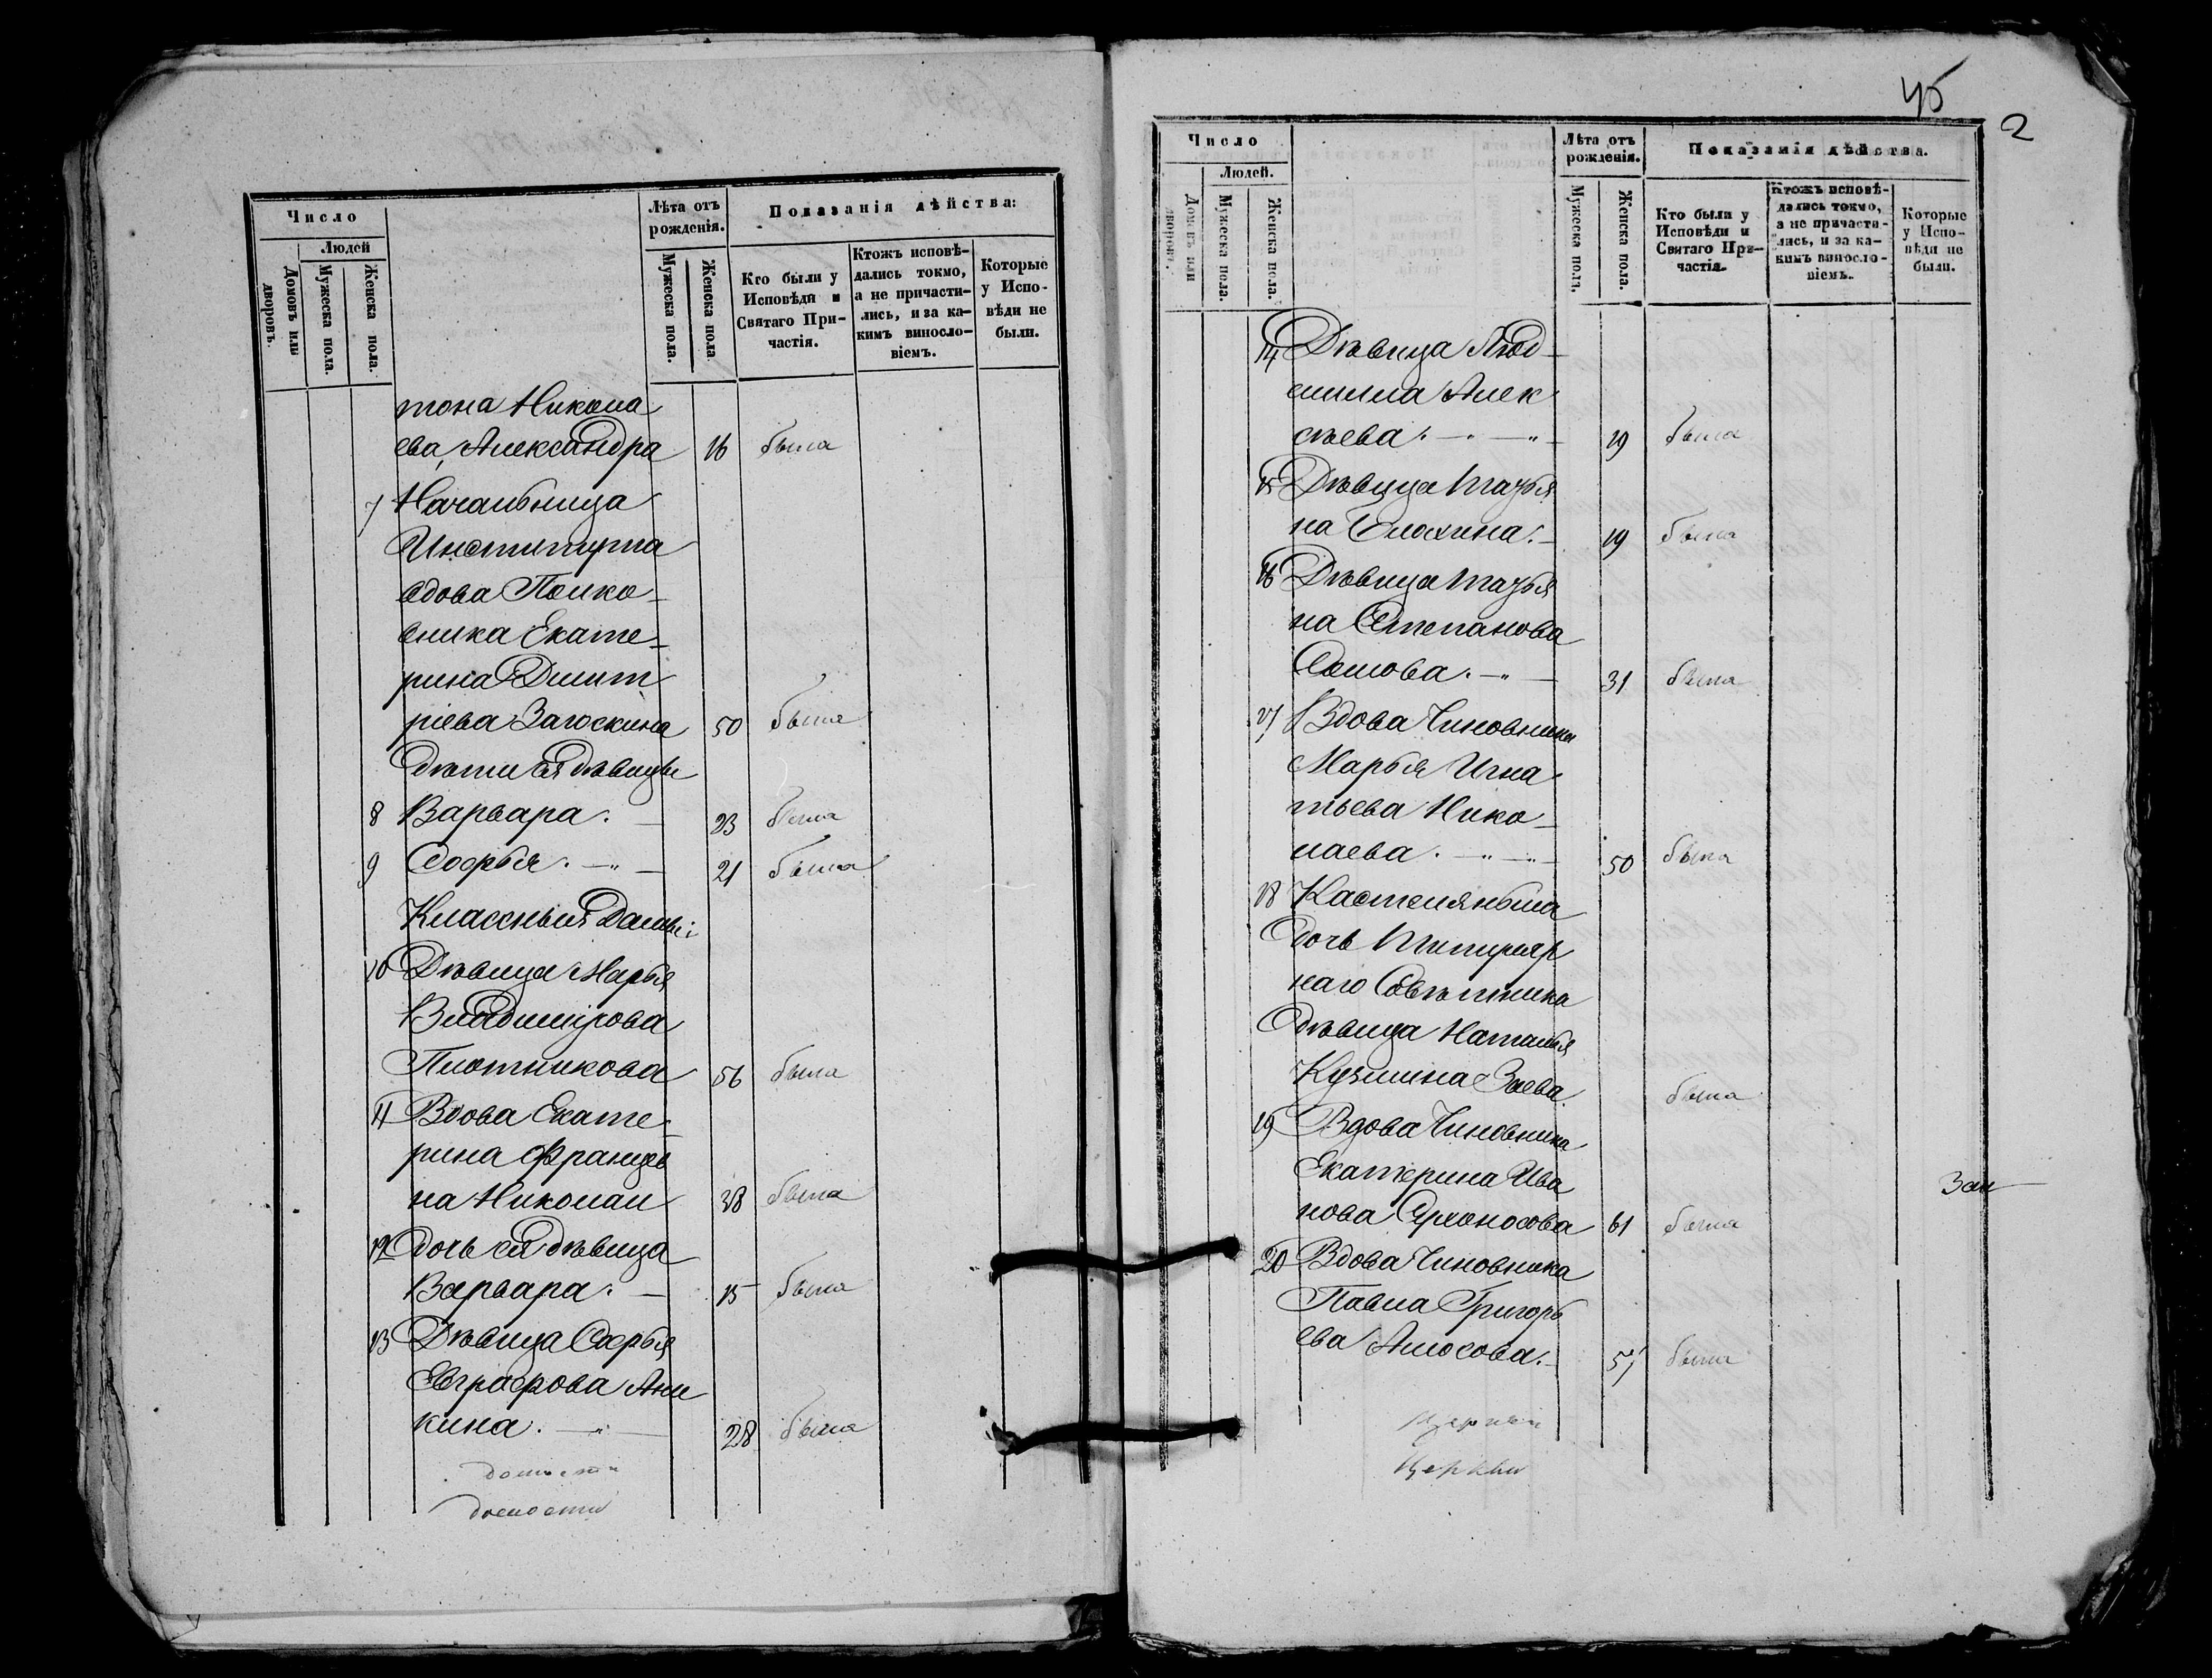 Число
Людей
Домовъ или дворовъ.
Мужеска пола.
Женска пола.
Лѣта отъ рожденія.
Мужеска пола.
Женска пола
Показанія дѣйства:
Кто были у Исповѣди и Святаго Причастія.
Ктожъ исповѣдались токмо, а не причастились, и за какимъ винословіемъ.
Которые у Исповѣди не были.
тона Никола
ева, Александра 16 была
7 Начальница
Института
вдова Полко-
вника Екате-
рина Дмит
ріева Загоскина 50 была
дѣти ея дѣвицы
8 Варвара. — 23 была
9 Софья. —„— 21 была
Классныя Дамы:
10 Дѣвица Марья
Владимірова
Плотникова 56 была
11 Вдова Екате-
рина Францев
на Николаи 38 была
12 дочь ея дѣвица
Варвара. — 15 была
13 Дѣвица Софья
Евграфова Ани
кина. —„— 28 была
45
2
Число
Людей.
Домовъ или дворовъ.
Мужеска пола.
Женска пола.
Лѣта отъ рожденія.
Мужеска пола.
Женска пола.
Показанія дѣйства.
Кто были у Исповѣди и Святаго Причастія.
Ктожъ исповѣдались токмо, а не причастились, и за какимъ винословіемъ.
Которые у Исповѣди не были.
14 Дѣвица Люд-
мила Алек
сѣева. —„—„— 19 была
15 Дѣвица
на 19 была
16 Дѣвица
на Степанова
31 была
17 Вдова Чиновника
Марья Игна
тьева Нико-
лаева. —„—„— 50 была
18 Кастелянша
дочь Титуляр
наго Совѣтника
дѣвица Наталья
Кузмина Заева. была
19 Вдова Чиновника
Екатерина Ива
нова 61 была
Зак
20 Вдова Чиновника
Павла Григорь
ева Амосова. 57 была
Церкви